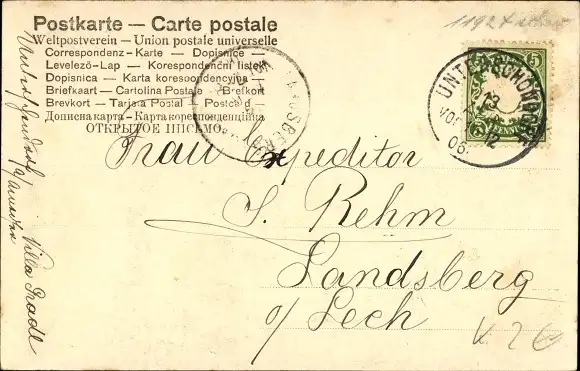 Postkarte — Carte postale
Weltpostverein — Union postale universelle
Correspondenz-Karte — Dopisnice
Levelező-Lap — Korespondenční listek
Dopisnica — Karta korespondencyjna
Briefkaart — Cartolina Postale — Brefkort
Brevkort — Tarjeta Postal — Postcard
Дописна карта — Карта кореспонденційна
ОТКРЫТОЕ ПИСЬМО
5
PFENNIG
13
VOR
12
06
Frau Expeditor
J. Rehm
Landsberg
o/Lech
Villa